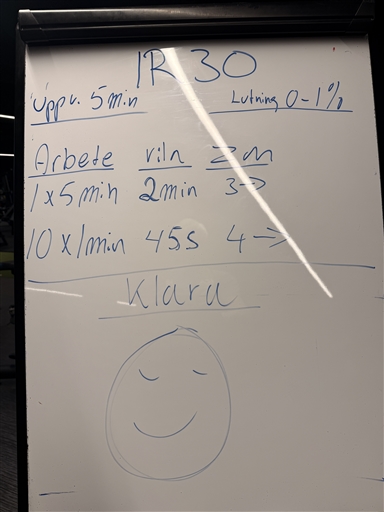 IR 30
Uppv. 5 min Lutning 0-1%
Arbete vila Zon
1x5 min 2 min 3->
10x1min 45s 4->
Klara